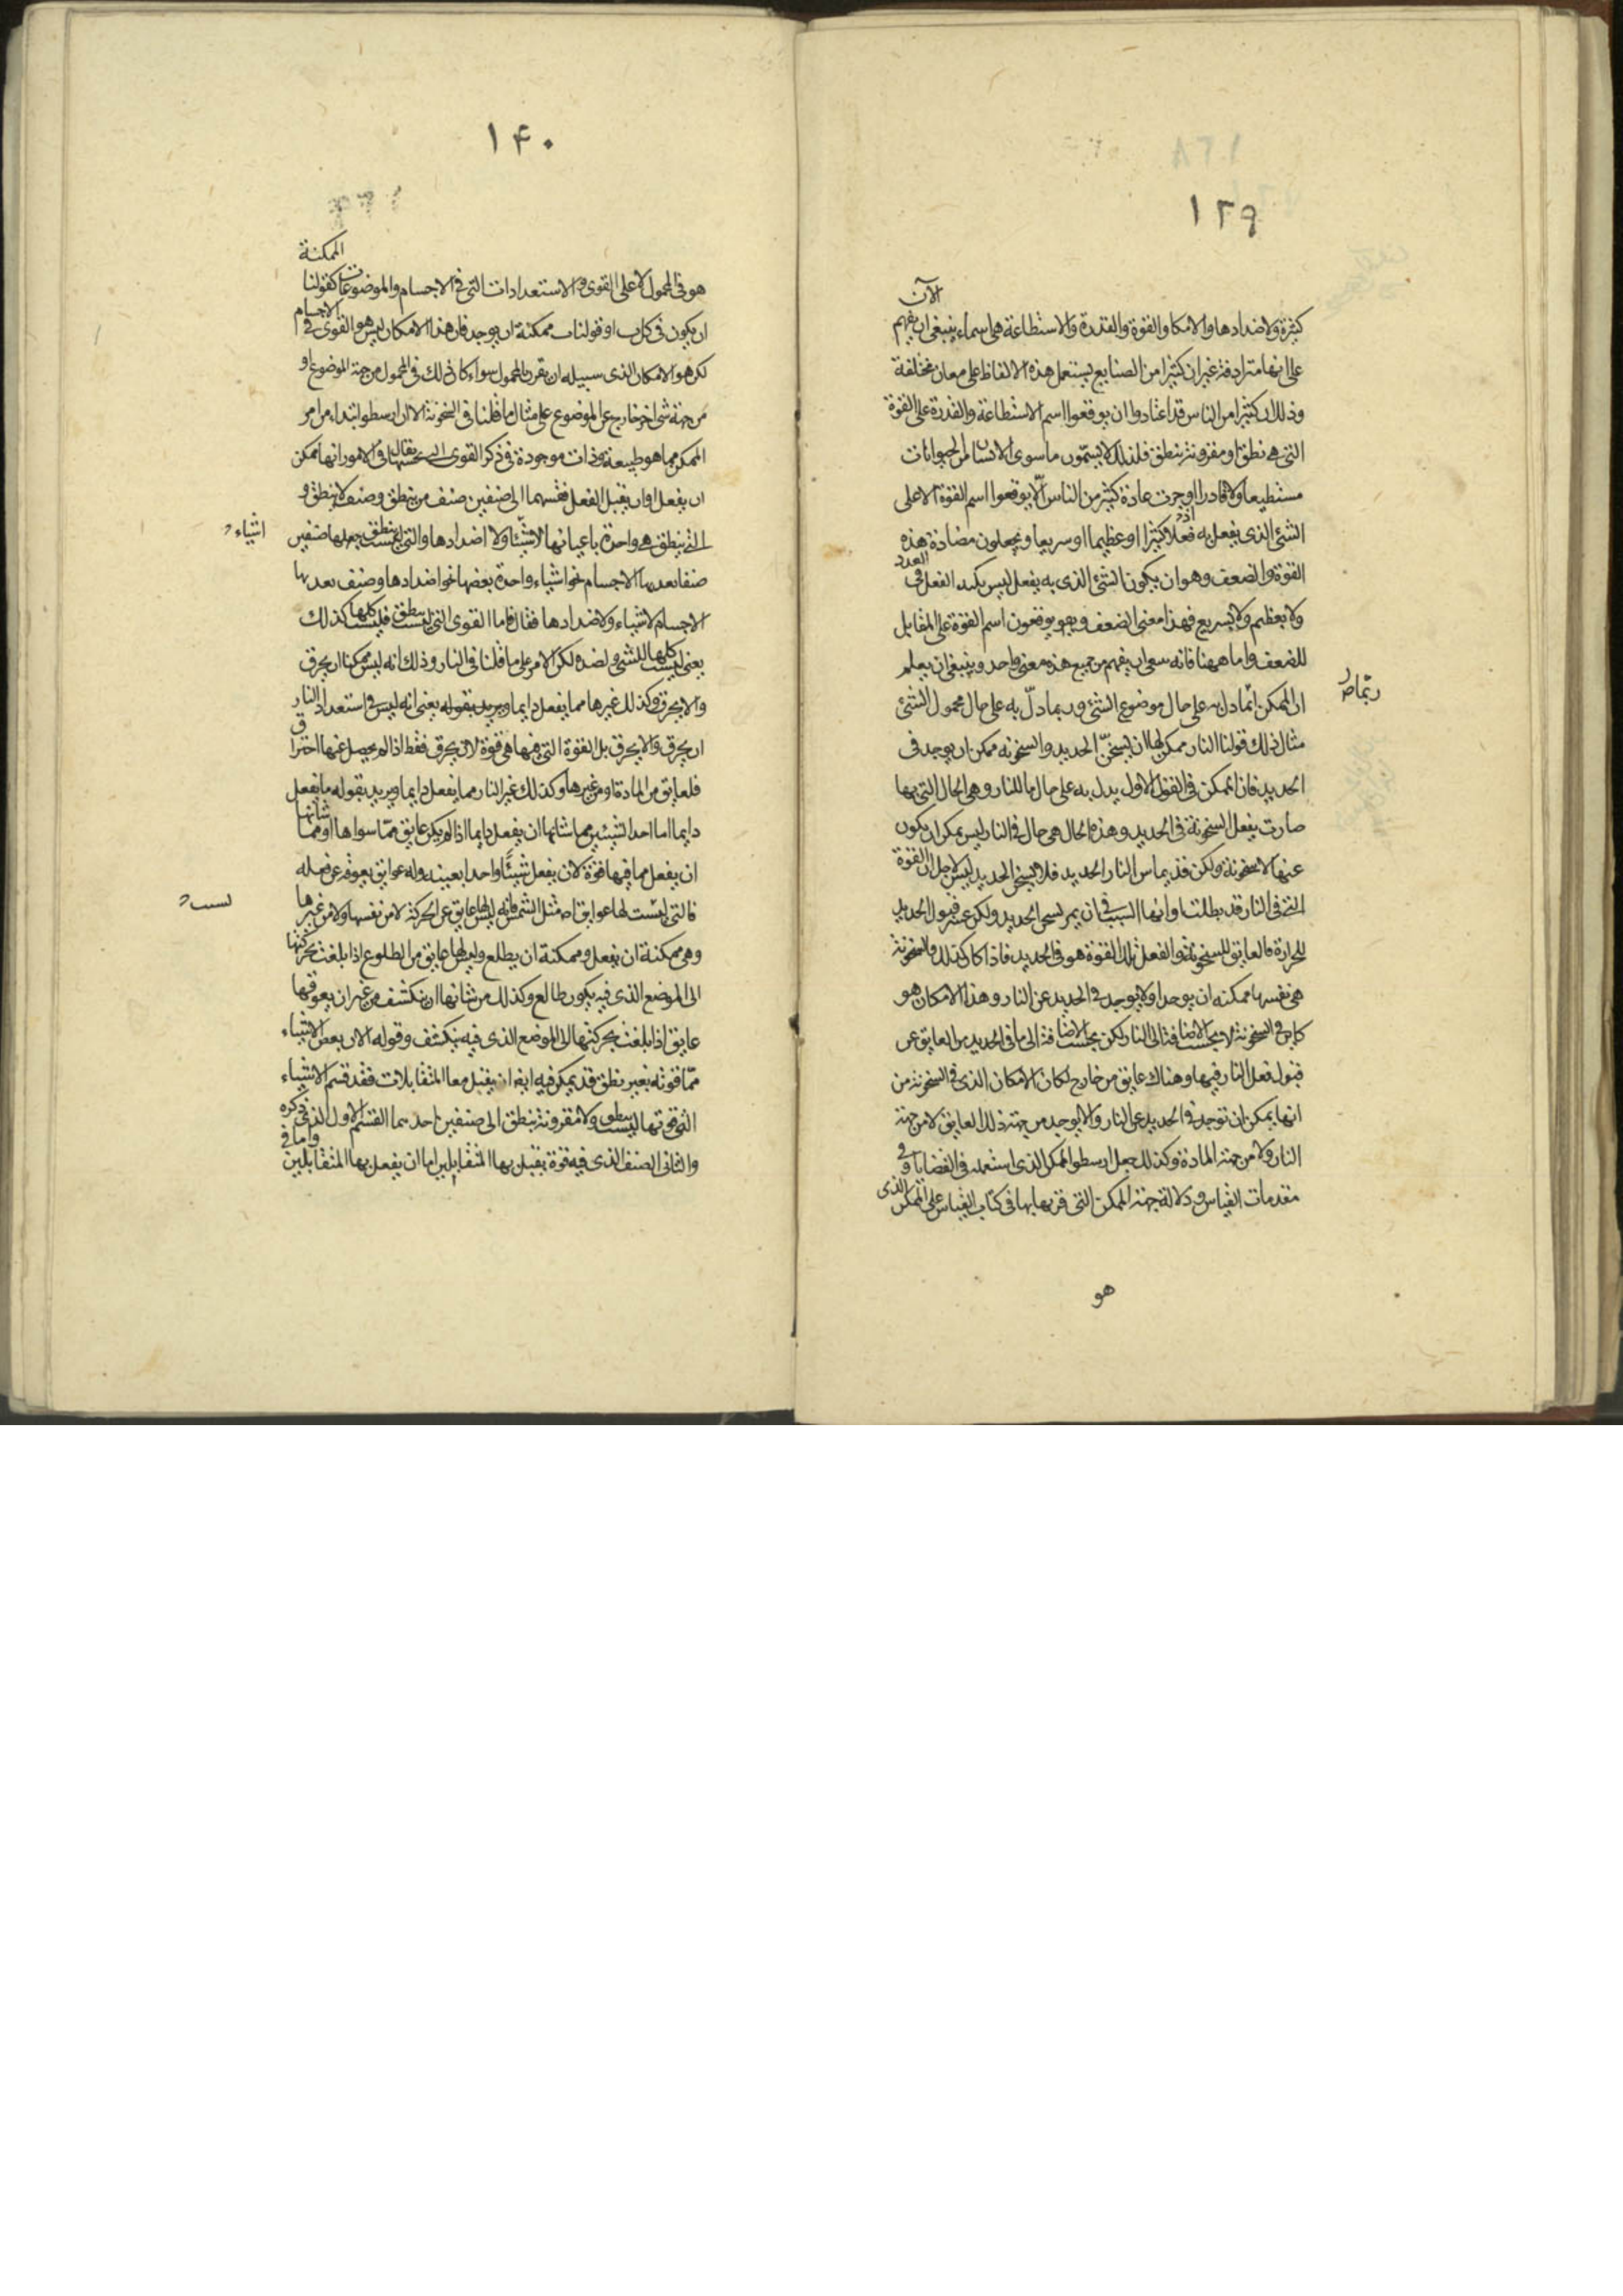 ١٣٩
الآن
كثيرة ولاضدادها والامكان والقوة والقدرة والاستطاعة هى اسماء ينبغى ان يفهم
على انها مترادفة غير ان كثيرا من الصنايع يستعمل هذه الالفاظ على معان مختلفة
وذلك ان كثيرا من الناس قد اعتادوا ان يوقعوا اسم الاستطاعة والقدرة على القوة
التى هى نطق او مقرونة بنطق فلذلك لا يسمّون ما سوى الانسان من الحيوانات
مستطيعا ولا قادرا وجرت عادة كثير من الناس الّا يوقعوا اسم القوة الا على
الشئ الذى يفعل به فعلا كثيرا او عظيما او سريعا ويجعلون مضادة هذه
القوة والضعف وهو ان يكون الشئ الذى به يفعل ليس بكبد الفعل فى العدد
ولا بعظيم ولا بسريع فهذا معنى الضعف وهو يوقعون اسم القوة على المقابل
للضعف واما ههنا فانه ينبغى ان يفهم من جميع هذه معنى واحد وينبغى ان يعلم
ان الممكن انما دل به على حال موضوع الشئ وربما دلّ به على حال محمول الشئ
ربما
مثال ذلك قولنا النار ممكن لها ان تسخّن الحديد والسخونه ممكن ان يوجد فى
الحديد فان الممكن فى القول الاول يدل به على حال ما للنار وهى الحال التى بها
صارت يفعل السخونة فى الحديد وهذه الحال هى حال فى النار ليس يمكن ان يكون
عنها لا سخونة ولكن قد يماس النار الحديد فلا يسخن الحديد ليس لاجل ان القوة
التى فى النار قد بطلت وانها السبب فى ان لم يسخن الحديد ولكن عسر قبول الحديد
للحرارة فالعايق للسخونة والفعل تلك القوة هو فى الحديد فاذا كان كذلك والسخونة
هى نفسها ممكنه ان يوجد او لا يوجد فى الحديد عن النار وهذا الامكان هو
كاين فى السخونة لا بحسب الاضافة الى النار لكن بحسب الاضافة الى ما فى الحديد من العايق عن
قبول فعل النار فيها وهناك عايق من خارج لكان الامكان الذى فى السخونة من
انها يمكن ان توجد فى الحديد عن النار والا يوجد من جهة ذلك العايق لا من جهة
النار ولا من جهة المادة وكذلك جعل ارسطو الممكن الذى استعمله فى القضايا وفى
مقدمات القياس ودلالة جهة الممكن التى قرنها بها فى كتاب القياس على الممكن الذى
هو
١۴٠
الممكنة
هو فى المحمول لا على القوى والاستعدادات التى فى الاجسام والموضوعات كقولنا
ان يكون فى كل ب او قولنا ب ممكنة ان يوجد فان هذا الامكان ليس هو القوى فى الاجسام
لكن هو الامكان الذى سبيله ان يقرن بالمحمول سواء كان ذلك فى المحمول من جهة الموضوع او
من جهة شى اخر خارج عن الموضوع على مثال ما قلنا فى السخونة الا ان ارسطو ابتداء من امر
الممكن مما هو طبيعة وذات موجودة فى ذكر القوى التى بحسبها يقال فى الامور انها ممكن
ان يفعل او ان يقبل الفعل فقسمها الى صنفين صنف من ينطق وصنف لا ينطق و
التى بنطق هى واحدة باعيانها لاشياء ولاضدادها والتى ليست بنطق جعلها صنفين
اشياء
صنفا بعدها الاجسام نحو اشياء واحدة بعضها نحو اضدادها وصنف بعد بها
الاجسام لاشياء ولاضدادها فقال فاما القوى التى ليست بنطق فليست كلها كذلك
يعنى ليست كلها للشئ ولضده لكن الامر على ما قلنا فى النار وذلك انه ليس ممكنا ان يحرق
والا يحرق وكذلك غيرها مما يفعل دايما ويريد بقوله يعنى انه ليس فى استعداد النار
ان يحرق والا يحرق بل القوة التى فيها هى قوة لان يحرق فقط اذا لم يحصل عنها احتراق
فلعايق من المادة او من غيرها وكذلك غير النار مما يفعل دايما ويريد بقوله ما يفعل
دايما اما احد الشيئين مما شانها ان يفعل دايما اذا لم يكن عايق ممّا سواها او مما شانها
ان يفعل مما فيها قوة لان يفعل شيئًا واحدا بعينه وله عوايق يعوقه عن فعله
فالتى ليست لها عوايق اصلا مثل الشمس فانه ليس لها عايق عن الحركة لا من نفسها ولا من غيرها
ليست
وهى ممكنة ان يفعل وممكنة ان يطلع وليس لها عايق من الطلوع اذا بلغت بحركتها
الى الموضع الذى فيه يكون طالع وكذلك من شانها ان ينكشف من غير ان يعوقها
عايق اذا بلغت بحركتها الى الموضع الذى فيه ينكشف وقوله الا ان بعض الاشياء
ممّا قوته بغير نطق قد يمكن فيه ايضا ان يقبل معا المتقابلات فقد قسم الاشياء
التى قوتها ليست بنطق ولا مقرونة بنطق الى صنفين احدهما القسم الاول الذى ذكره
والثانى الصنف الذى فيه قوة يقبل بها المتقابلين اما ان يفعل بها المتقابلين واما فى